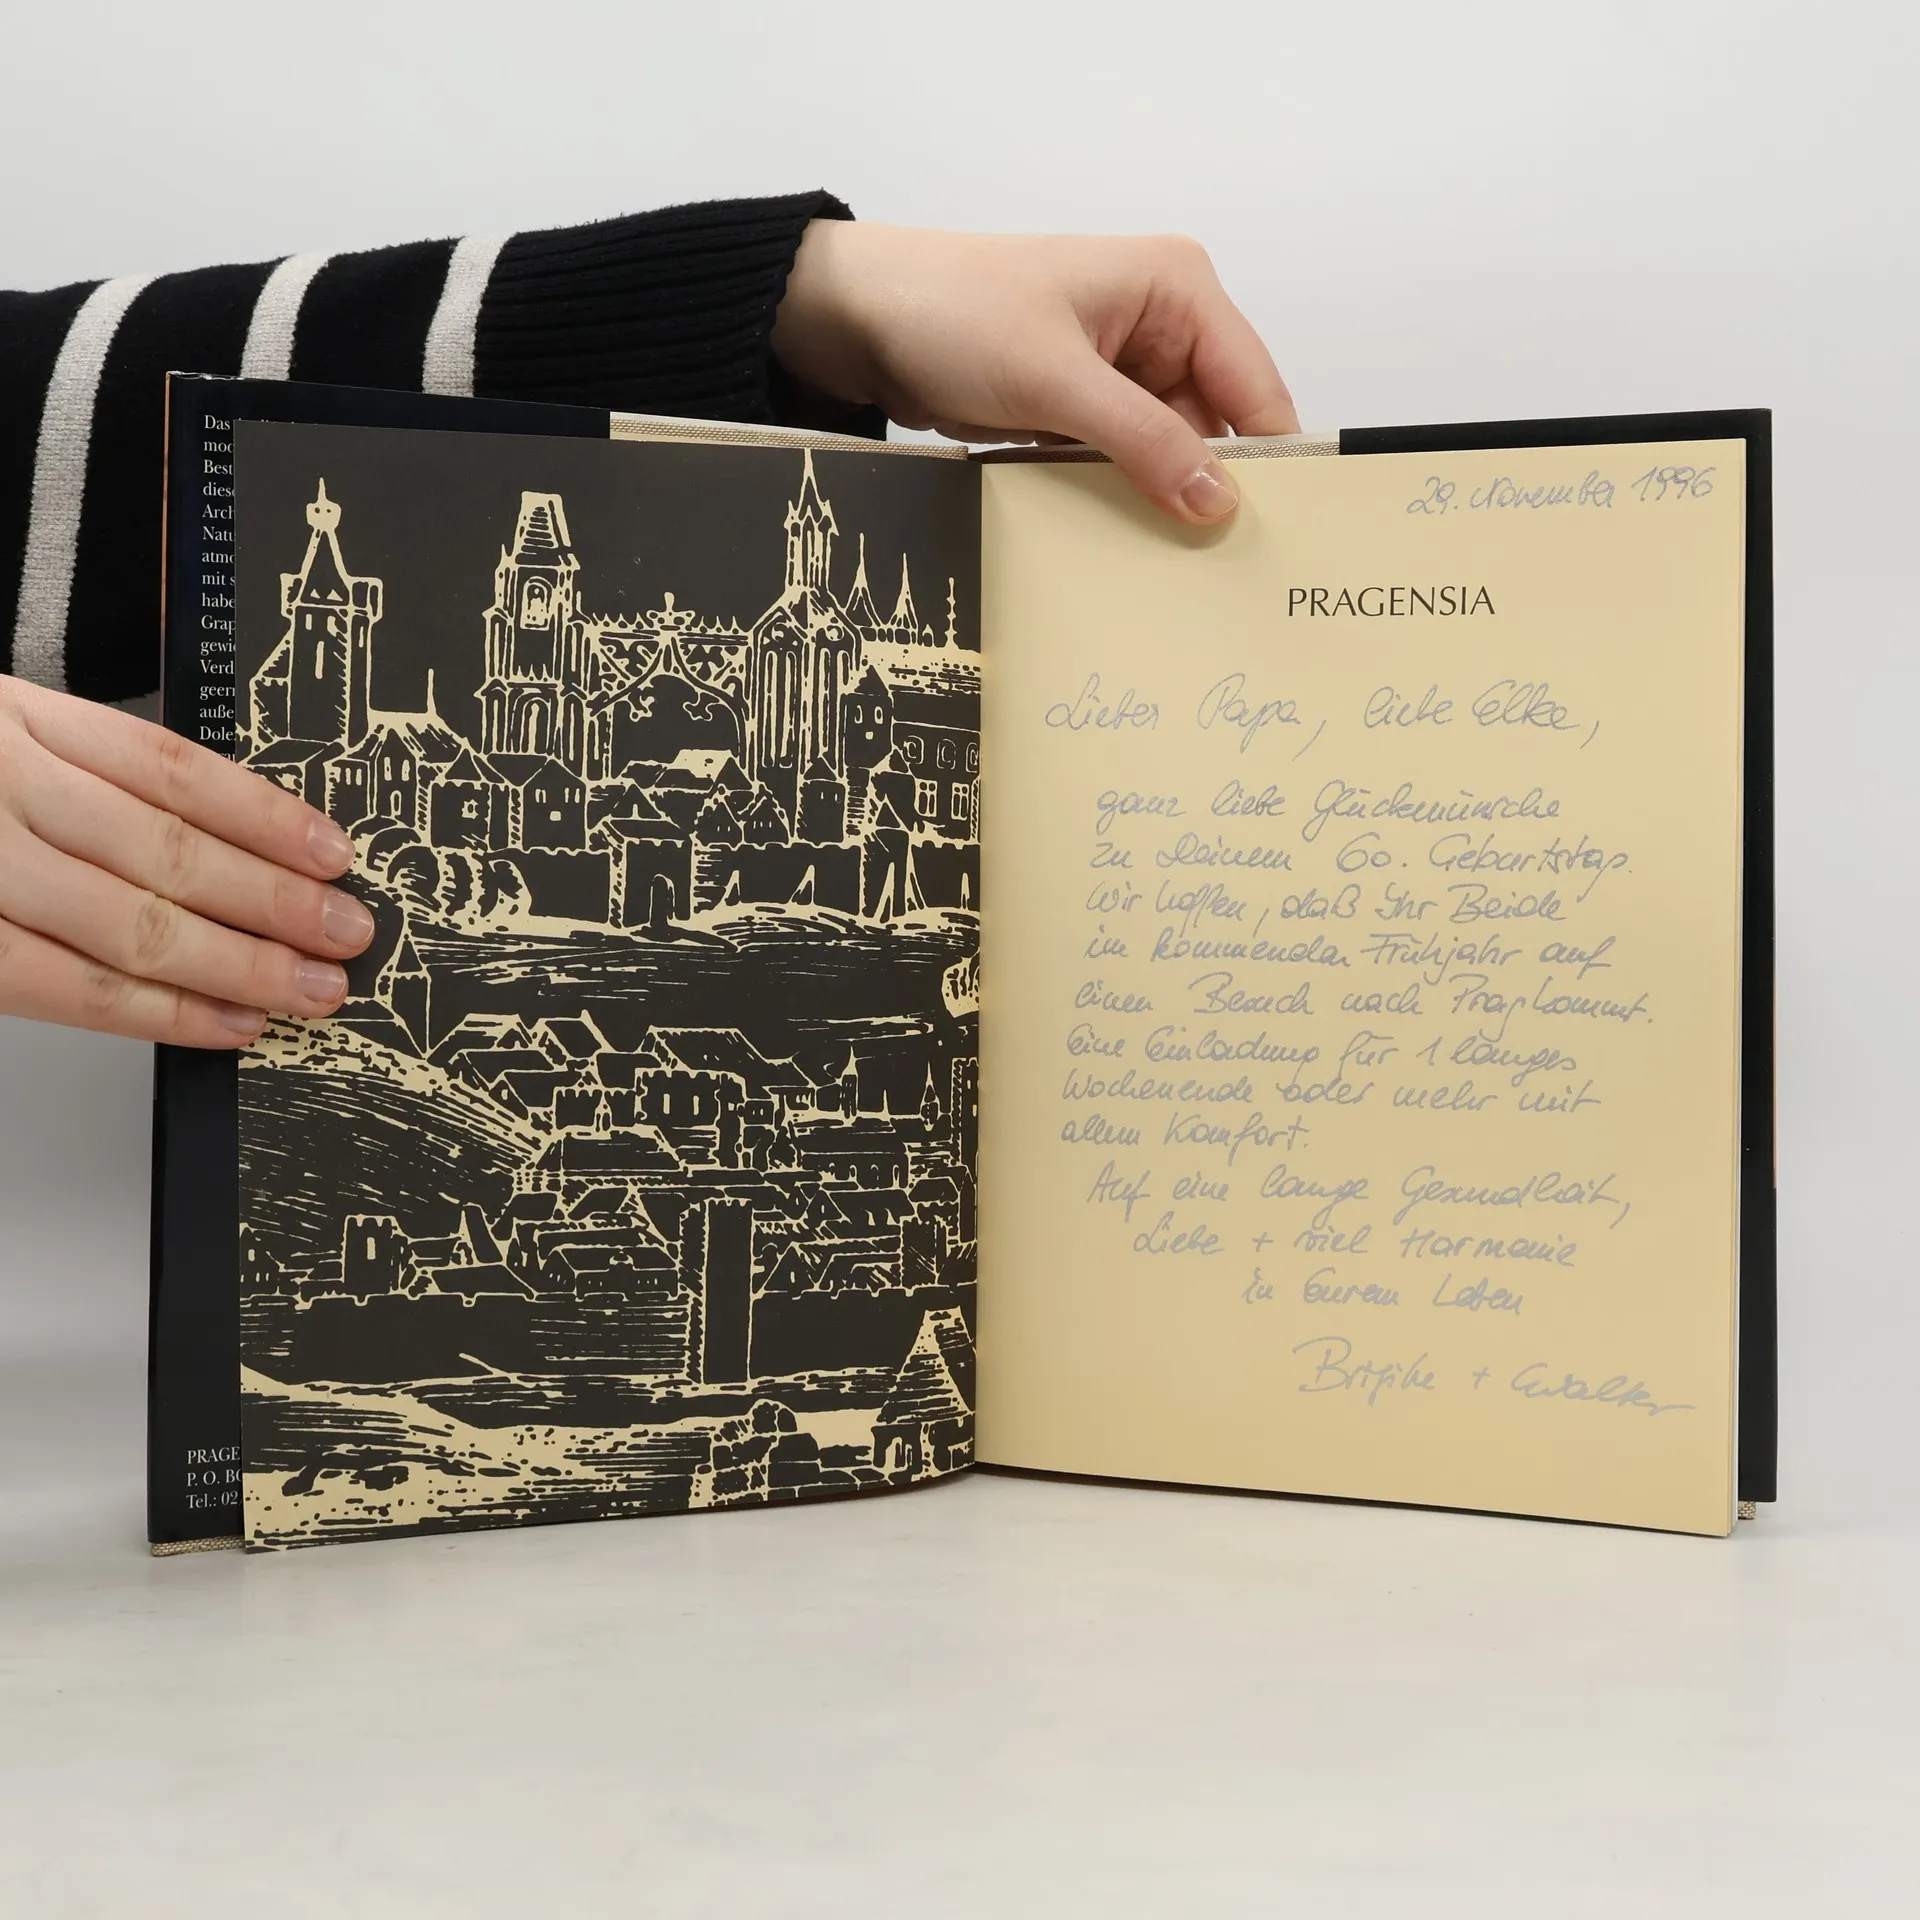 Das
mod
Best
diese
Arch
Natu
atmo
mit s
habe
Grap
gewi
Verd
geer
auße
Dole
PRAGE
P. O. BO
Tel.: 02
29. November 1996
PRAGENSIA
Lieber Papa, liebe Elke,
ganz liebe Glückwünsche
zu Deinem 60. Geburtstag.
Wir hoffen, daß Ihr Beide
im kommenden Frühjahr auf
einen Besuch nach Prag kommt.
Eine Einladung für 1 langes
Wochenende oder mehr mit
allem Komfort.
Auf eine lange Gesundheit,
Liebe + viel Harmonie
in Eurem Leben
Brigitte + Ewalter